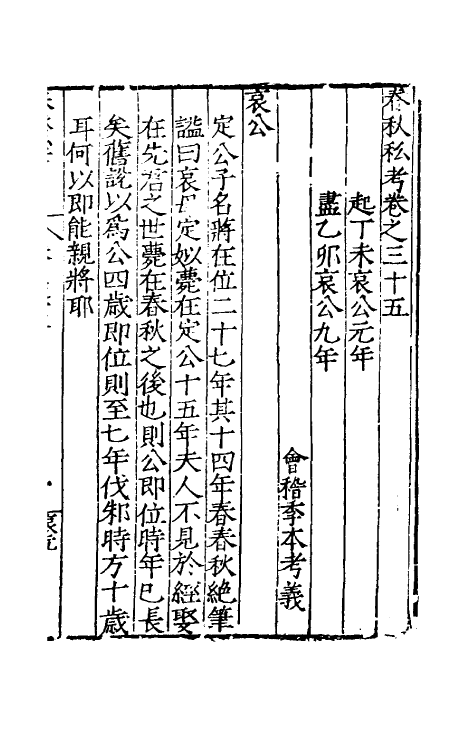 春秋私考卷之三十五
起丁未哀公元年
盡乙卯哀公九年
會稽季本考義
哀公
定公子名將在位二十七年其十四年春春秋絶筆
諡曰哀母定姒薨在定公十五年夫人不見於經娶
在先君之世薨在春秋之後也則公即位時年已長
矣舊說以爲公四歲即位則至七年伐邾時方十歲
耳何以即能親將耶